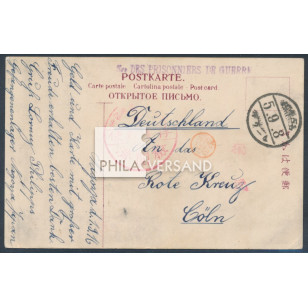 DES PRISONNIERS DE GUERRE
POSTKARTE.
Carte postale - Cartolina postale - Post card
ОТКРЫТОЕ ПИСЬМО.
Deutschland
An das
Rote Kreuz
Cöln
PHILA VERSAND
5.9.8
Geld und Karte mit großer
Freude erhalten besten Dank
Gruß
Gefangenenlager Nagoya Japan